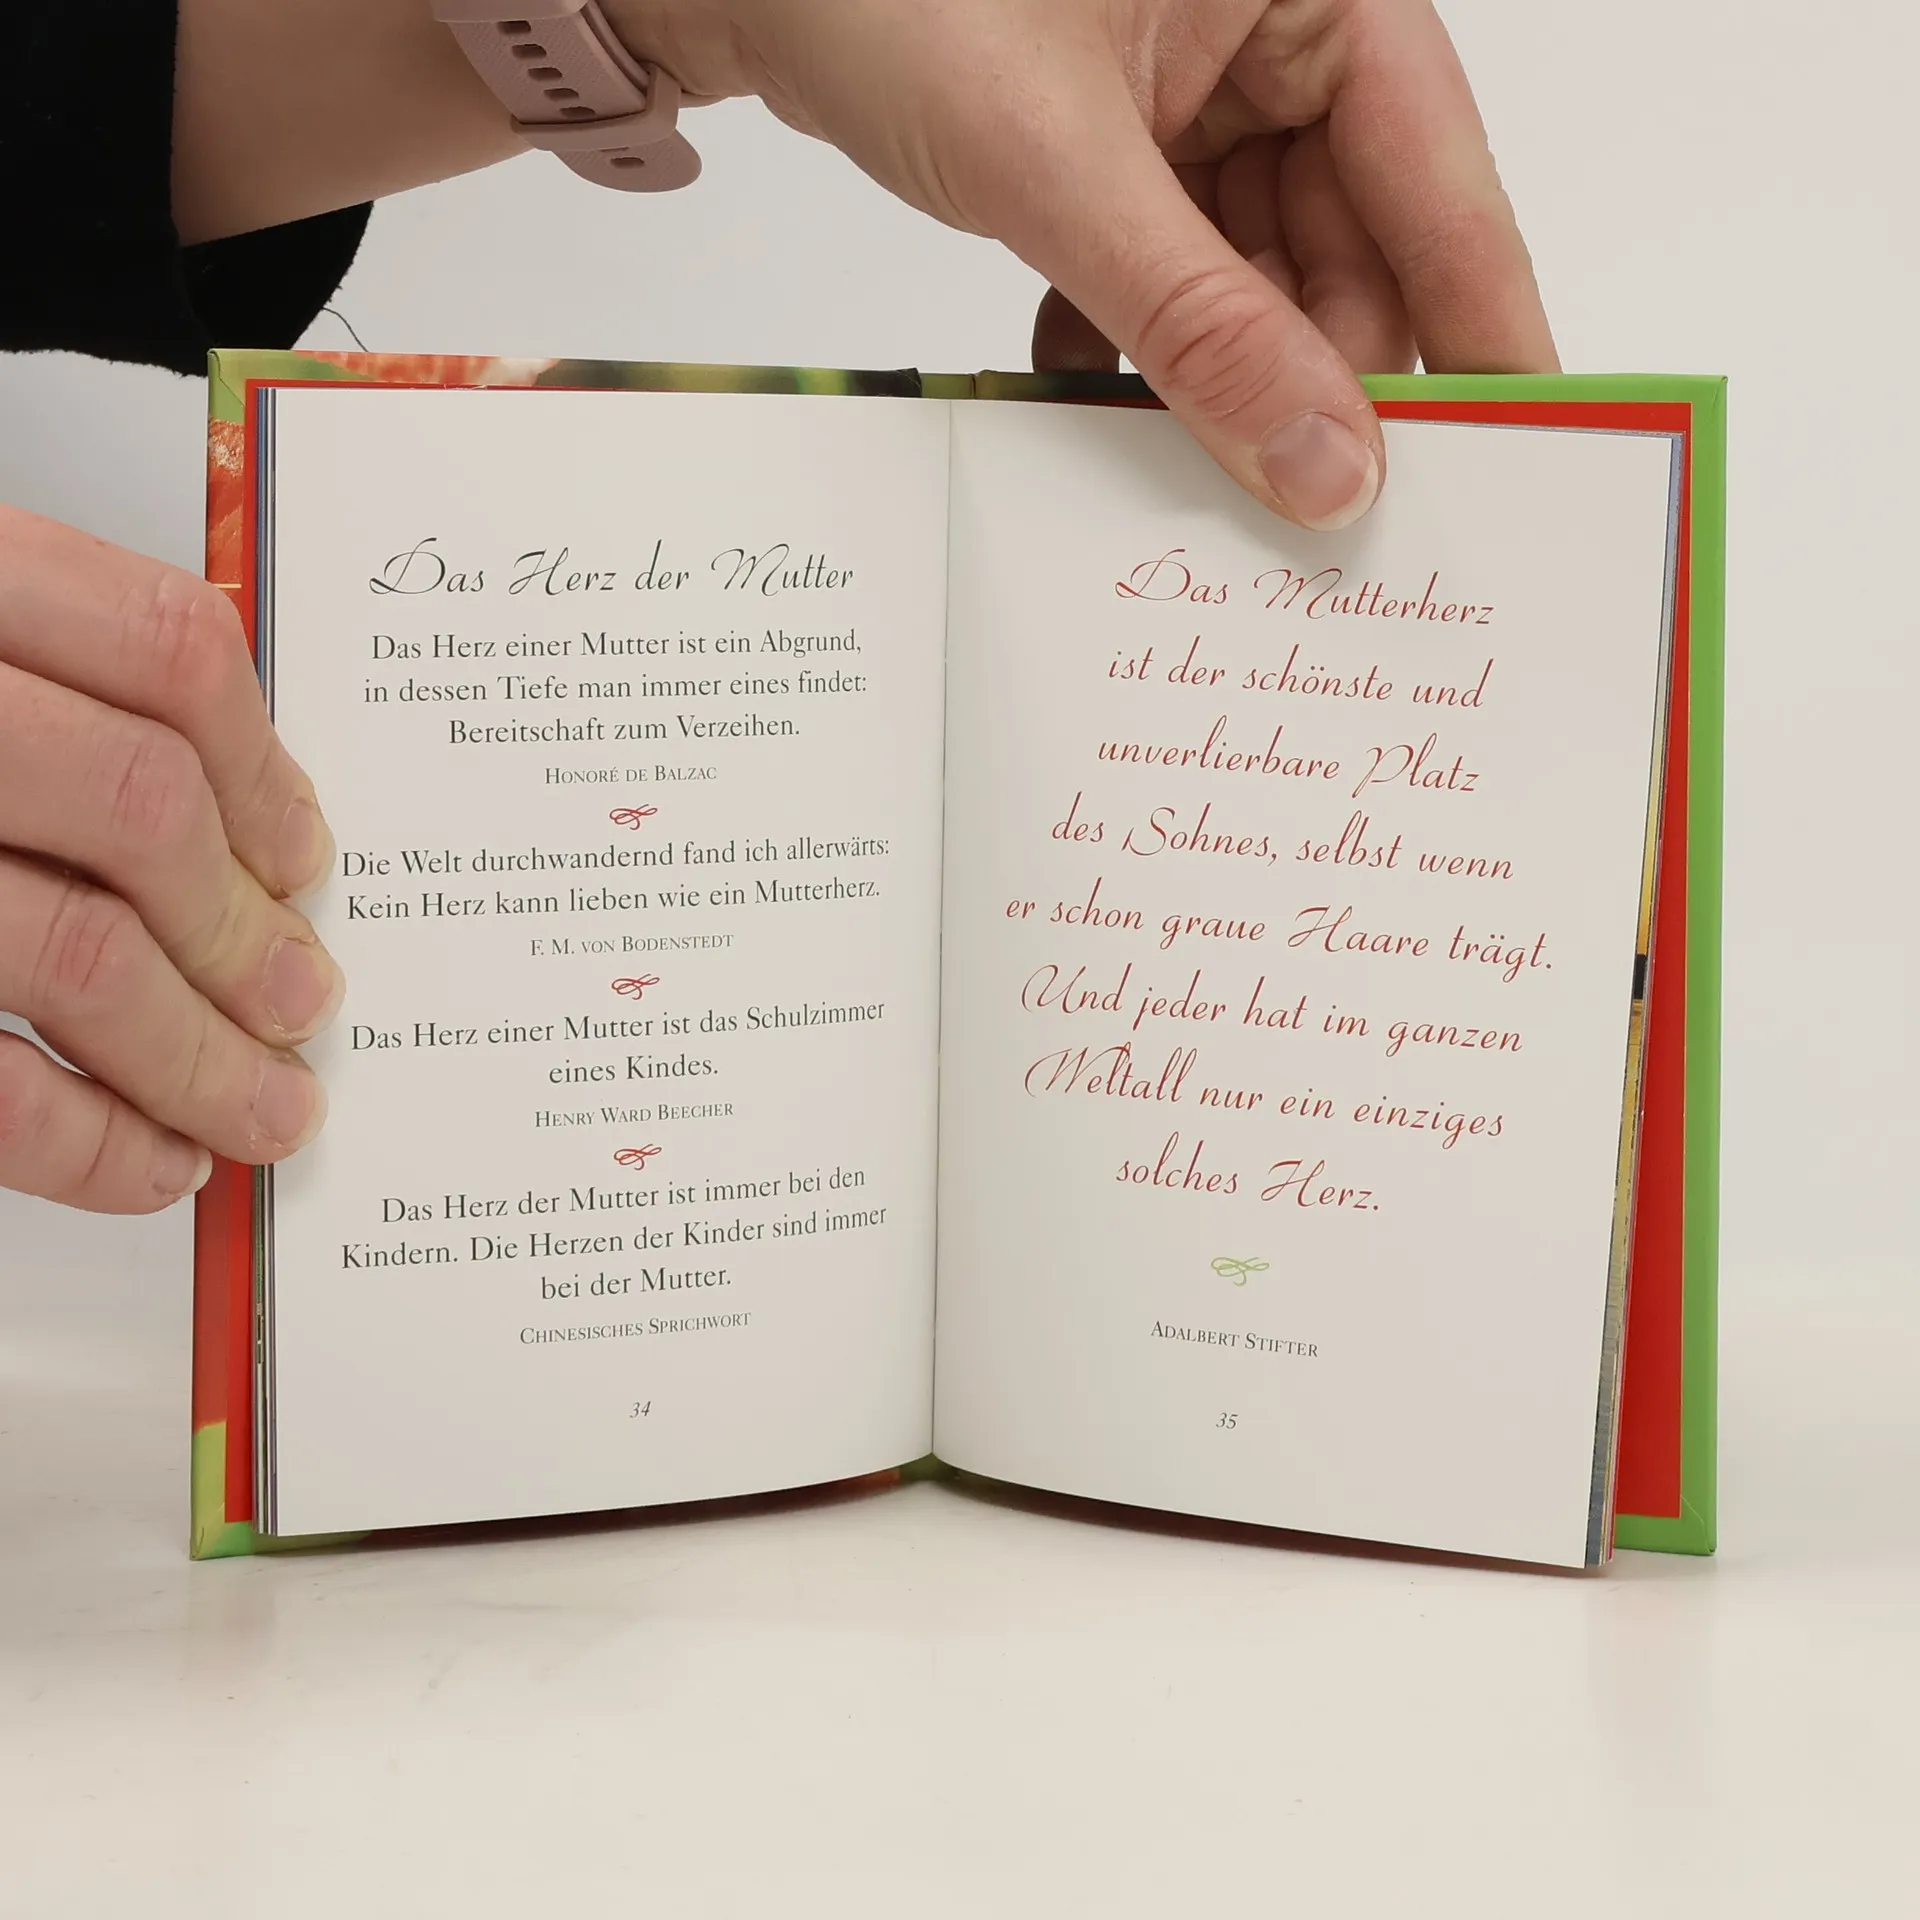 Das Herz der Mutter
Das Herz einer Mutter ist ein Abgrund,
in dessen Tiefe man immer eines findet:
Bereitschaft zum Verzeihen.
HONORÉ DE BALZAC
Die Welt durchwandernd fand ich allerwärts:
Kein Herz kann lieben wie ein Mutterherz.
F. M. VON BODENSTEDT
Das Herz einer Mutter ist das Schulzimmer
eines Kindes.
HENRY WARD BEECHER
Das Herz der Mutter ist immer bei den
Kindern. Die Herzen der Kinder sind immer
bei der Mutter.
CHINESISCHES SPRICHWORT
34
Das Mutterherz
ist der schönste und
unverlierbare Platz
des Sohnes, selbst wenn
er schon graue Haare trägt.
Und jeder hat im ganzen
Weltall nur ein einziges
solches Herz.
ADALBERT STIFTER
35